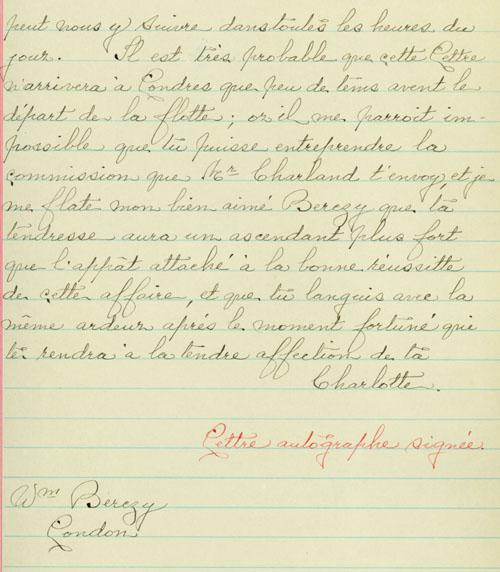 peut nous y suivre dans toutes les heures du
jour. Il est très probable que cette Lettre
n'arrivera à Londres que peu de tems avent le
départ de la flotte; or il me parroit im-
possible que tu puisse entreprendre la
commission que Mr Charland t'envoy, et je
me flate mon bien aimé Berezy que ta
tendresse aura un ascendant plus fort
que l'appât attaché à la bonne réussitte
de cette affaire, et que tu languis avec la
même ardeur aprés le moment fortuné qui
te rendra à la tendre affection de ta
Charlotte.
Lettre autographe signée.
Wm Berezy
London